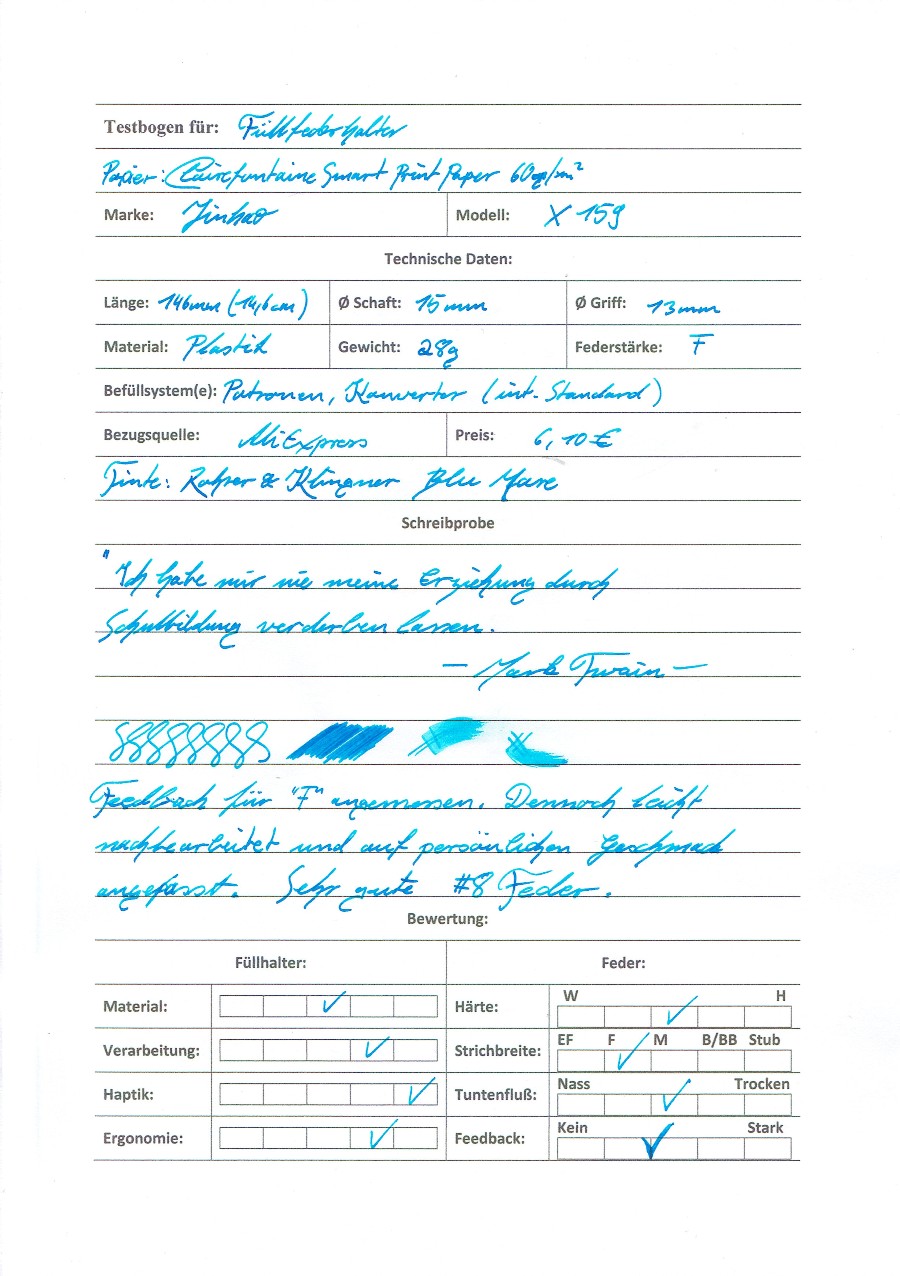 Testbogen für: Füllfederhalter
Papier: Clairefontaine Smart Print Paper 60g/m²
Marke: Jinhao Modell: X 159
Technische Daten:
Länge: 146mm (14,6cm) Ø Schaft: 15mm Ø Griff: 13mm
Material: Plastik Gewicht: 28g Federstärke: F
Befüllsystem(e): Patronen, Konverter (int. Standard)
Bezugsquelle: AliExpress Preis: 6,10€
Tinte: Rohrer & Klingner Blu Mare
Schreibprobe
"Ich habe mir nie meine Erziehung durch
Schulbildung verderben lassen.
— Mark Twain —
Feedback für "F" angemessen. Dennoch leicht
nachbearbeitet und auf persönlichen Geschmack
angefasst. Sehr gute #8 Feder.
Bewertung:
Füllhalter: Feder:
Material: Härte: W H
Verarbeitung: Strichbreite: EF F M B/BB Stub
Haptik: Tuntenfluß: Nass Trocken
Ergonomie: Feedback: Kein Stark